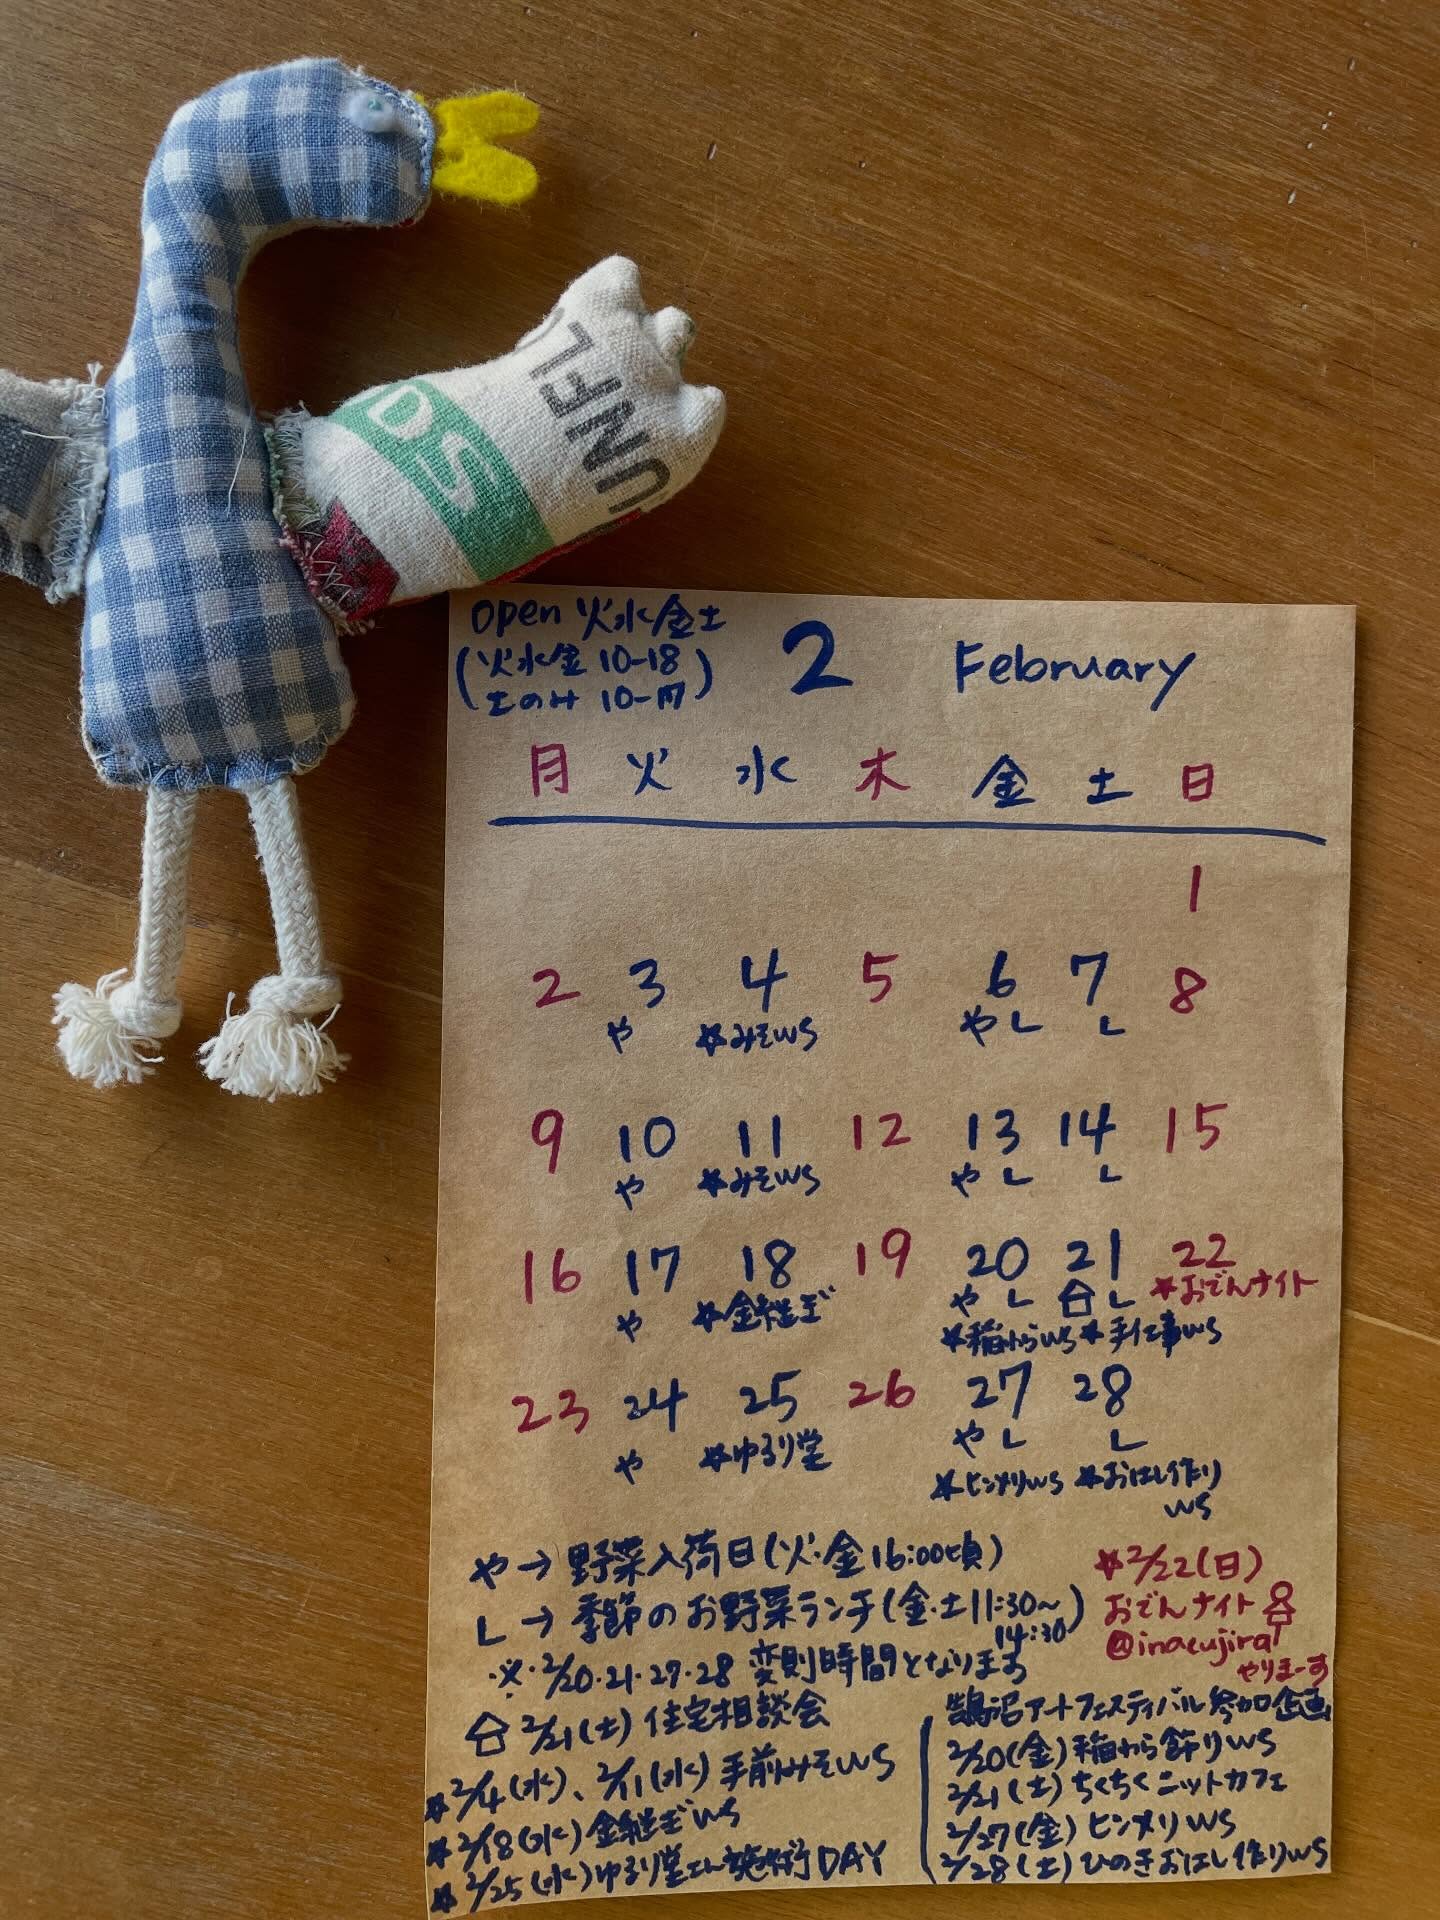 UNFL
DS
Open 火水金土
(火水金 10-18
土のみ 10-17)
2 February
月 火 水 木 金 土 日
1
2 3 4 5 6 7 8
や *みそWS やL L
9 10 11 12 13 14 15
や *みそWS やL L
16 17 18 19 20 21 22
や *金継ぎ やL L *おでんナイト
*稲わらWS *手仕事WS
23 24 25 26 27 28
や *ゆるり堂 やL L
*ヒンメリWS *おはし作り
WS
や→野菜入荷日(火・金16:00頃)
L→季節のお野菜ランチ(金・土11:30〜
14:30)
※2/20・21・27・28 変則時間となります
2/21(土)住宅相談会
*2/4(水)、2/11(水)手前みそWS
*2/18(水)金継ぎWS
*2/25(水)ゆるり堂さん施術DAY
*2/22(日)
おでんナイト
@inacujira
やりまーす
鵠沼アートフェスティバル参加企画
2/20(金)稲わら飾りWS
2/21(土)ちくちくニットカフェ
2/27(金)ヒンメリWS
2/28(土)ひのきおはし作りWS